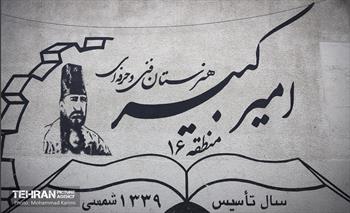 هنرستان فنی و حرفه‌ای
امیرکبیر
منطقه ۱۶
سال تأسیس ۱۳۳۹ شمسی
TEHRAN PICTURE AGENCY
Photo: Mohammad Karimi